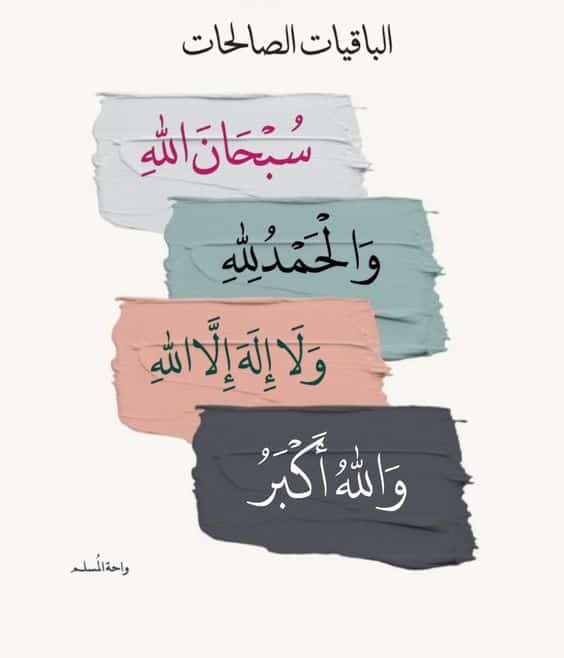 الباقيات الصالحات
سُبْحَانَ اللهِ
وَالْحَمْدُ لِلهِ
وَلَا إِلَهَ إِلَّا اللهِ
وَاللهُ أَكْبَرُ
واحة المُسلم